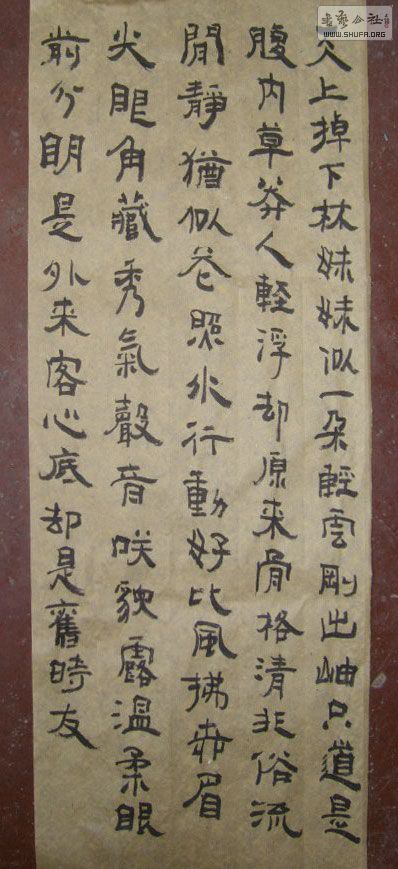 天上掉下林妹妹似一朵輕雲剛出岫只道是
腹内草莽人輕浮却原来骨格清非俗流
閒靜猶似花照水行動好比風拂眉
尖眼角藏秀氣聲音咲貌露溫柔眼
前分明是外来客心底却是舊時友
書藝公社
WWW.SHUFA.ORG